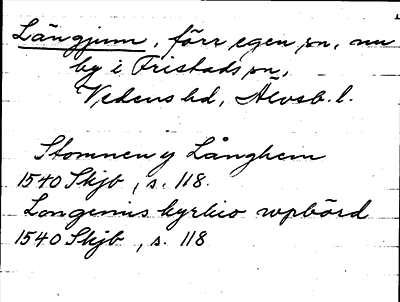 Längjum, förr egen sn, nu
by i Fristads sn,
Vedens hd, Älvsb. l.
Stomnen y Långhem
1540 Skjb, s. 118.
Longenus kyrkio vpbörd
1540 Skjb, s. 118